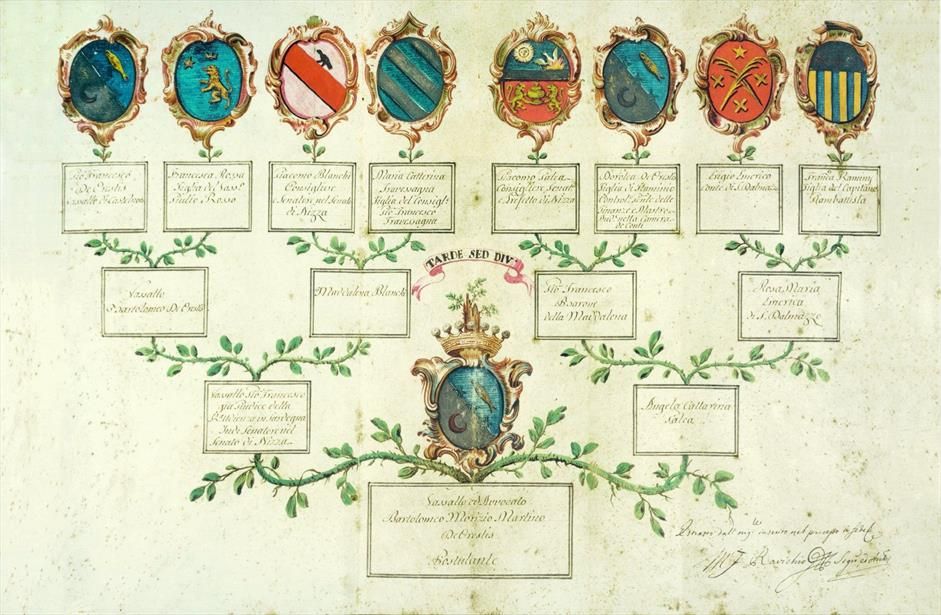 Gio Francesco
De Orestis
Vassallo di Castelnovo
Francesca Rossa
Figlia del Vass.
Giulio Rosso
Giacomo Blanchi
Consigliere
e Senatore nel Senato
di Nizza
Maria Catterina
Travessagna
Figlia del Consigl.
Gio Francesco
Travessagna
Giacomo Salca
Consigliere Senat.
e Prefetto di Nizza
Dorotea De Orestis
Figlia di Flaminio
Finanze e Mastro
nella Camera
de Conti
Luigi Emerico
Conte di S. Dalmazzo
Figlia del Capitano
Giambattista
TARDE SED DIV
Vassallo
Bartolomeo De Orestis
Maddalena Blanchi
Gio Francesco
Barone
della Maddalena
Rosa Maria
Emerica
di S. Dalmazzo
Vassallo Gio Francesco
già Giudice della
in Sardegna
Indi Senatore nel
Senato di Nizza
Angela Cattarina
Salca
Vassallo ed Avvocato
Bartolomeo Morizio Martino
De Orestis
Postulante